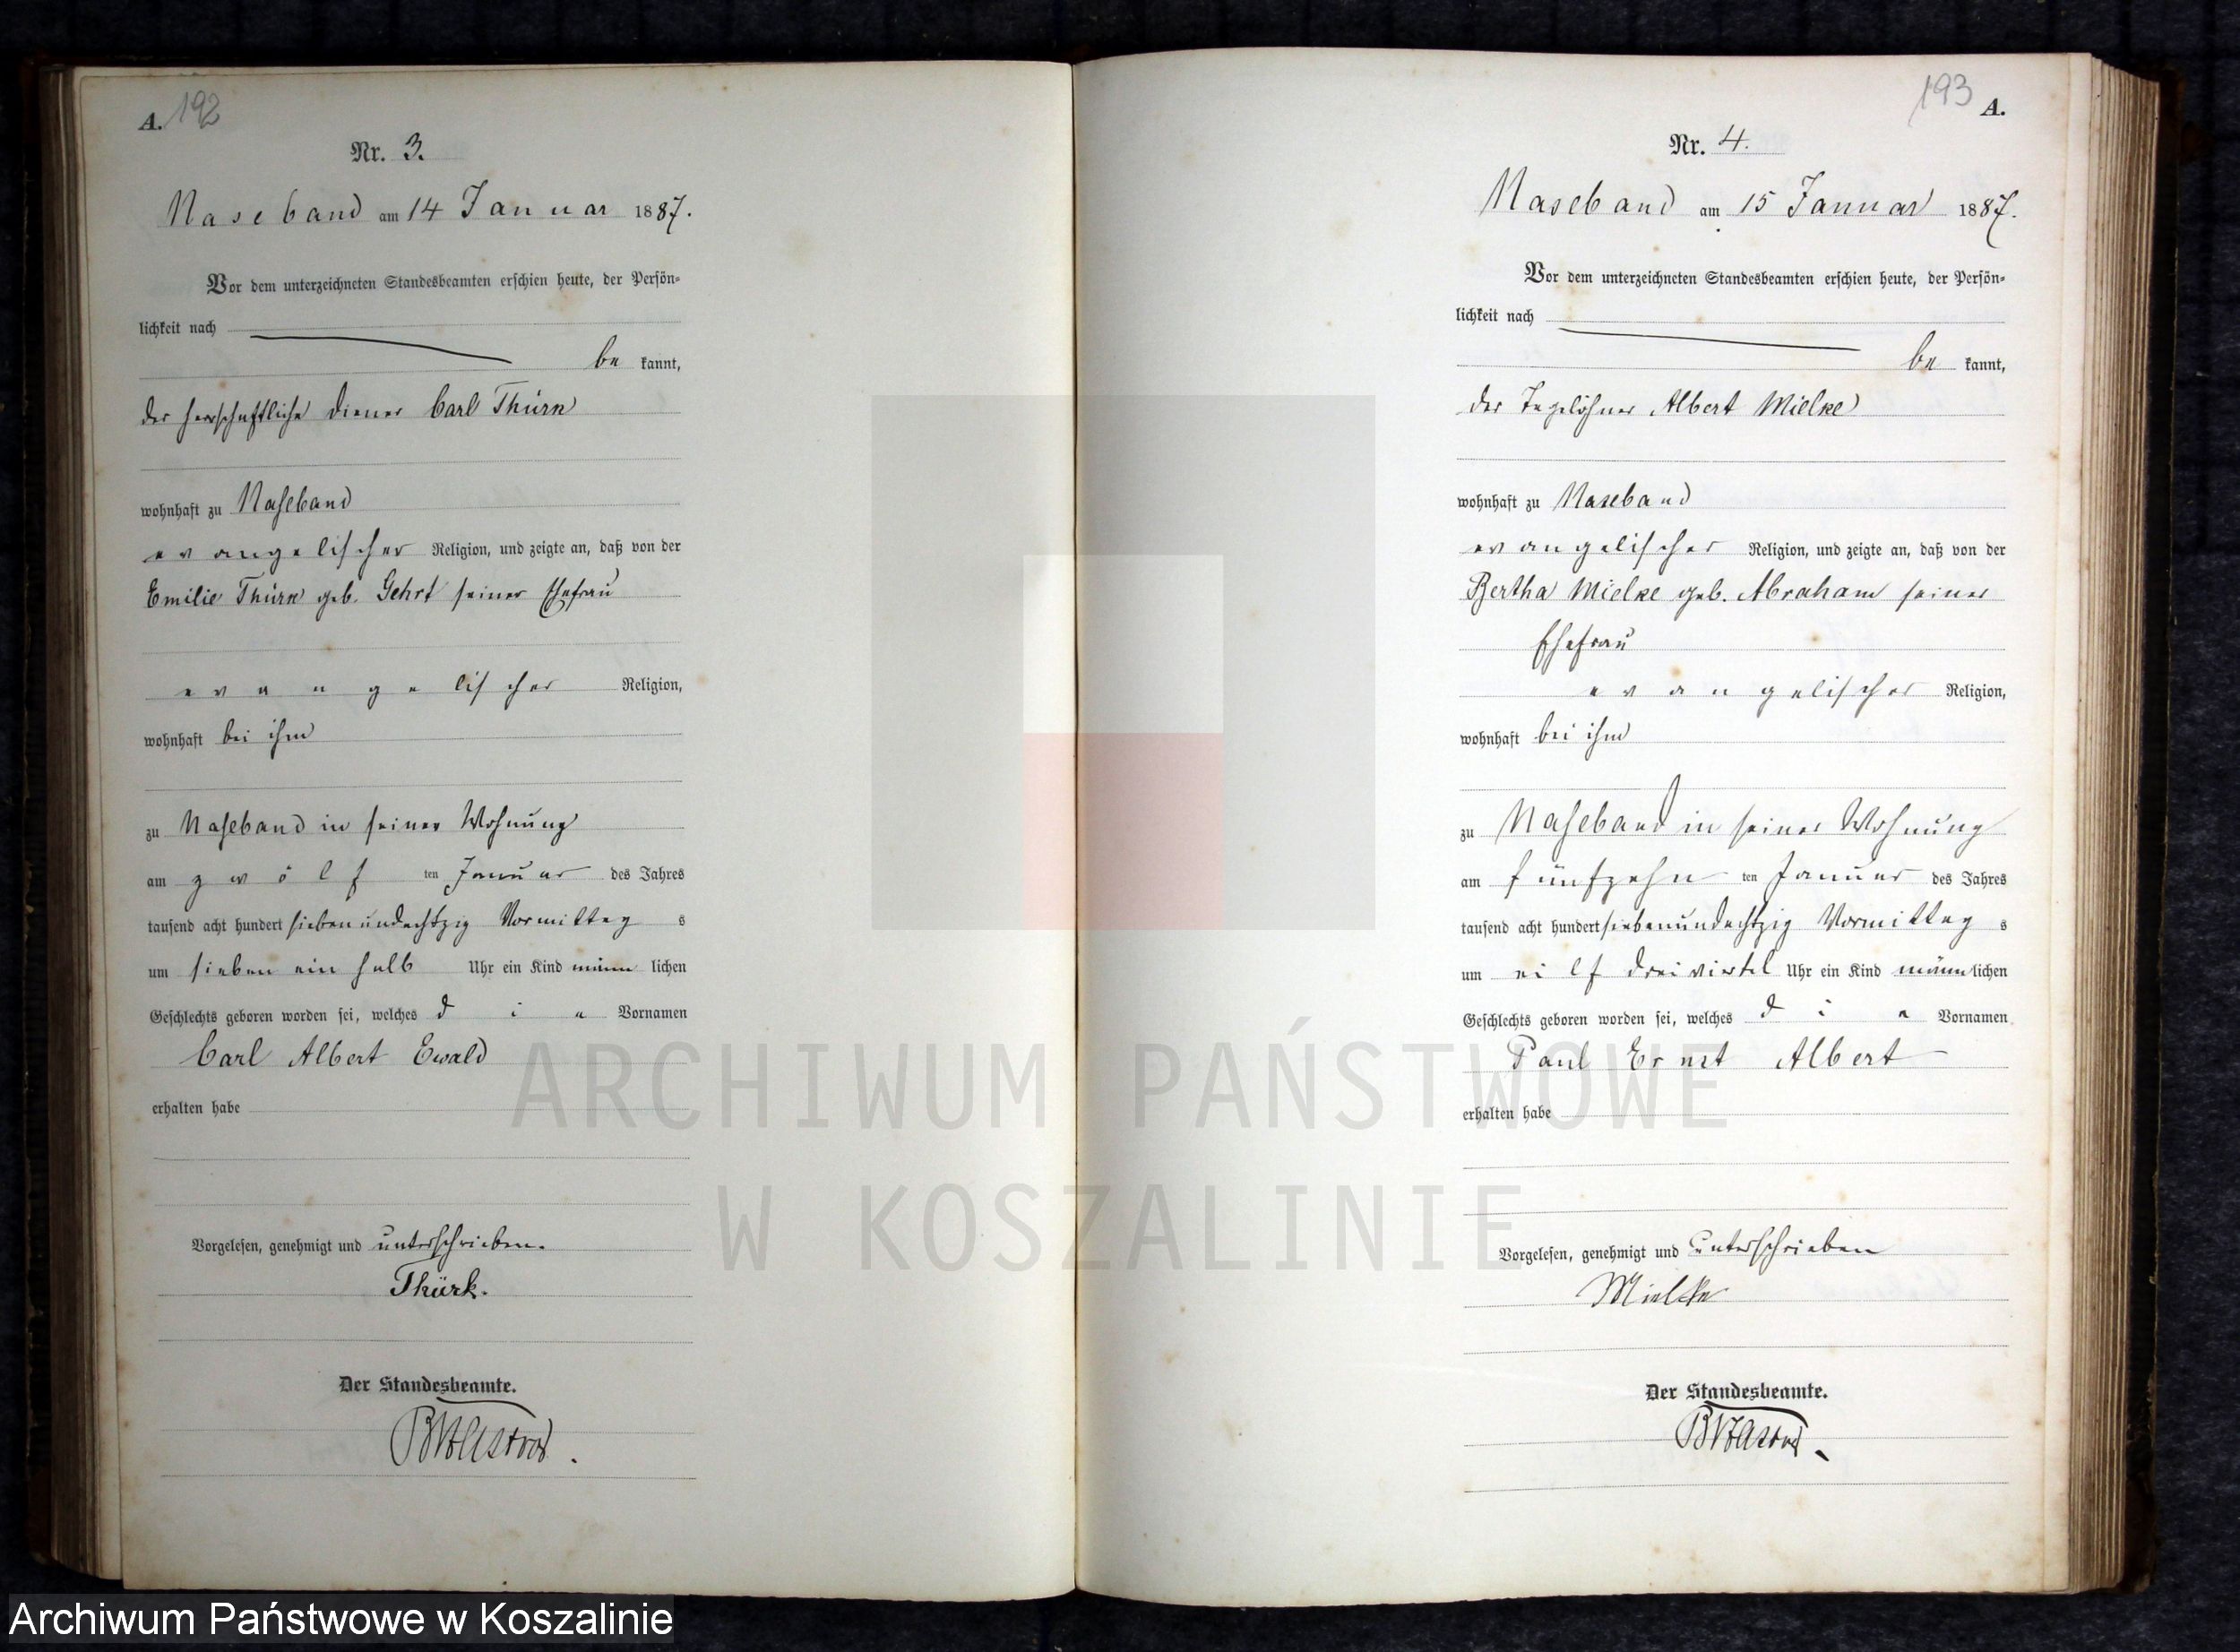 192
A.
Nr. 3.
Naseband am 14 Januar 1887.
Vor dem unterzeichneten Standesbeamten erschien heute, der Persön-
lichkeit nach
be kannt,
der herrschaftliche Diener Carl Thürk
wohnhaft zu Naseband
evangelischer Religion, und zeigte an, daß von der
Emilie Thürk geb. Gehrt seiner Ehefrau
evangelischer Religion,
wohnhaft bei ihm
zu Naseband in seiner Wohnung
am zwölf ten Januar des Jahres
tausend acht hundert siebenundachtzig Vormittag s
um sieben ein halb Uhr ein Kind männ lichen
Geschlechts geboren worden sei, welches die Vornamen
Carl Albert Ewald
erhalten habe
Vorgelesen, genehmigt und unterschrieben.
Thürk.
Der Standesbeamte.
193
A.
Nr. 4.
Naseband am 15 Januar 1887.
Vor dem unterzeichneten Standesbeamten erschien heute, der Persön-
lichkeit nach
be kannt,
der Tagelöhner Albert Mielke
wohnhaft zu Naseband
evangelischer Religion, und zeigte an, daß von der
Bertha Mielke geb. Abraham seiner
Ehefrau
evangelischer Religion,
wohnhaft bei ihm
zu Naseband in seiner Wohnung
am fünfzehn ten Januar des Jahres
tausend acht hundert siebenundachtzig Vormittag s
um eilf dreiviertel Uhr ein Kind männlichen
Geschlechts geboren worden sei, welches die Vornamen
Paul Ernst Albert
erhalten habe
Vorgelesen, genehmigt und unterschrieben
Mielke
Der Standesbeamte.
ARCHIWUM PAŃSTWOWE
W KOSZALINIE
Archiwum Państwowe w Koszalinie